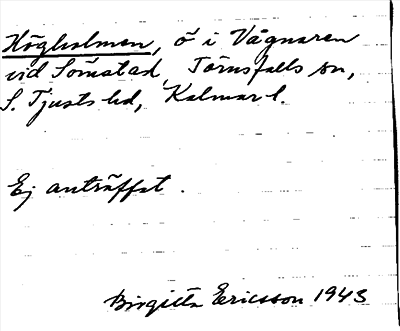 Högholmen, ö i Vågnaren
vid Sömstad, Törnsfalls sn,
S. Tjusts hd, Kalmar l.
Ej anträffat.
Birgitta Ericsson 1943